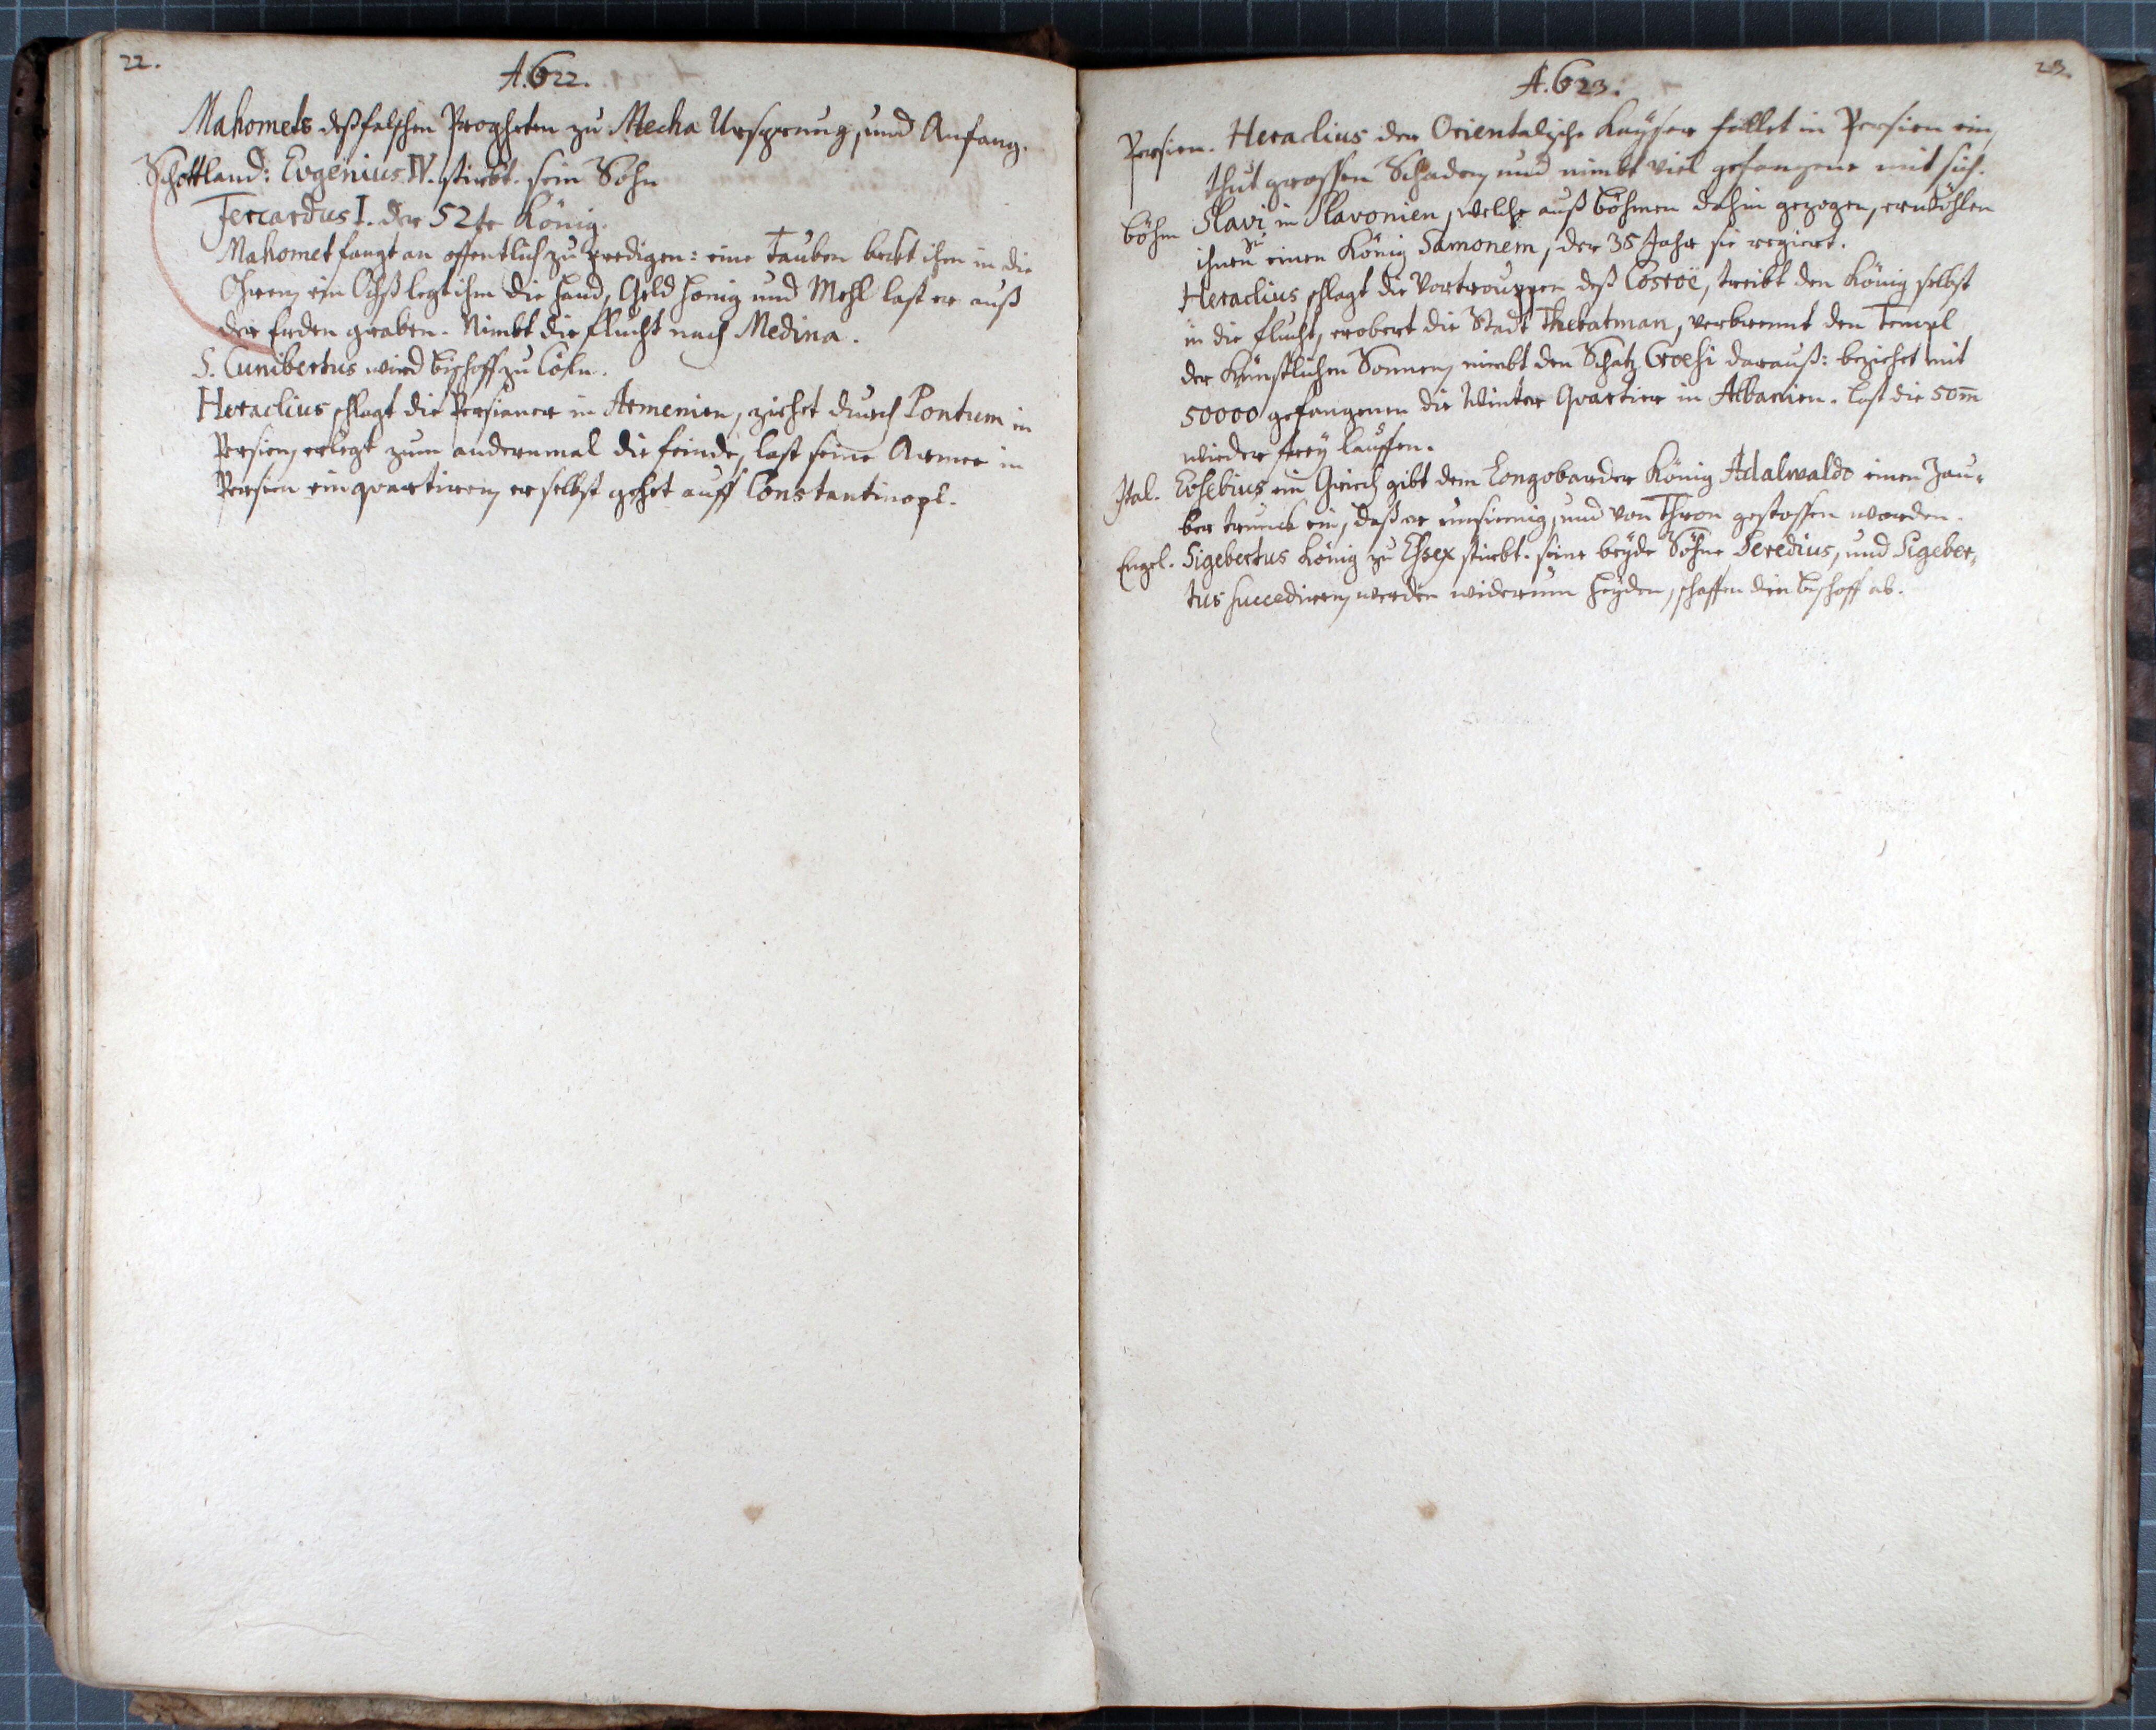 22.
A. 622.
Mahomets deß falschen Propheten zu Mecha Ursprung, und Anfang.
Schottland: Evgenius IV. stirbt. sein Sohn
Fercardus I. der 52te König.
Mahomet fangt an offentlich zu predigen: eine Tauben beckt ihm in die
Ohren, ein Ochß legt ihm die Hand, Geld Honig und Mehl last er auß
der Erden graben. Nimbt die flucht nach Medina.
S. Cunibertus wird Bischoff zu Cöln.
Heraclius schlagt die Persianer in Armenien, ziehet durch Pontum in
Persien, erlegt zum andernmal die feinde, last seine Armee in
Persien einquartiren, er selbst gehet auff Constantinopl.
23.
A. 623.
Persien. Heraclius der Orientalische Kayser fallet in Persien ein,
thut grossen Schaden, und nimbt viel gefangene mit sich.
Böhm Slavi in Slavonien, welche auß Böhmen dahin gezogen, erwöhlen
ihnen einen König Samonem, der 35 Jahr sie regiert.
Heraclius schlagt die Vortrouppen deß Cosroë, treibt den König selbst
in die flucht, erobert die Stadt Thebatman, verbrennt den Templ
der Künstlichen Sonnen, nimbt den Schatz Croesi darauß: beziehet mit
50000 gefangenen die Winter Quartier in Albanien. Last die 50m
wieder frey lauffen.
Ital. Evsebius ein Griech gibt dem Longobarder König Adalwaldo einen Zau-
ber trunck ein, daß er unsinnig, und von Thron gestossen worden.
Engel. Sigebertus König zu Essex stirbt. seine beyde Söhne Seredius, und Sigeber-
tus succediren, werden widerumb Heyden, schaffen den Bischoff ab.